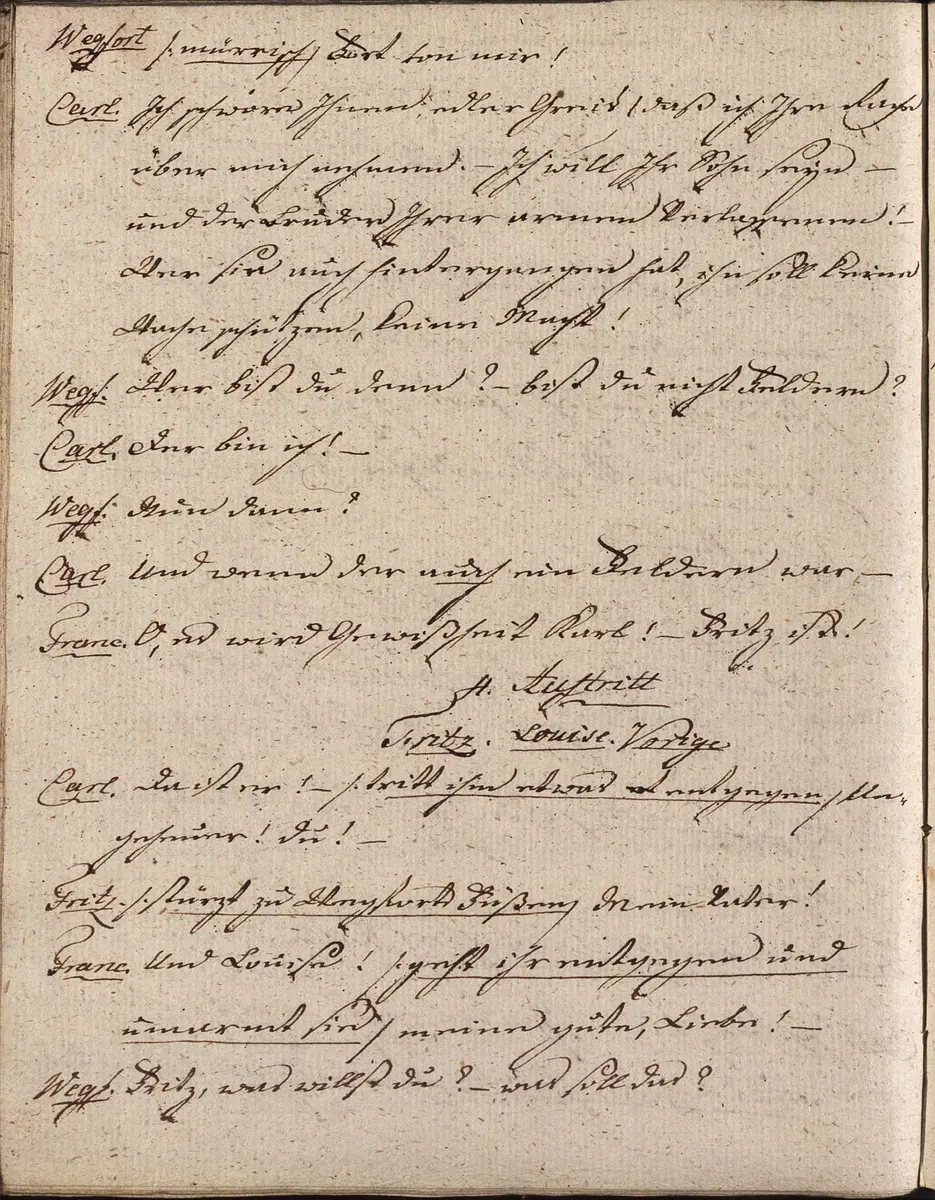 Wegfort /: mürrisch :/ Fort von mir!
Carl. Ich schwöre Ihnen, edler Greis / daß ich Ihre Rache
über mich nehmen. – Ich will Ihr Sohn seyn –
und der Bruder Ihrer armen Verlassenen! –
Wer sie auch hintergangen hat, ihn soll keine
Wache schützen, keine Macht!
Wegf. Wer bist du denn? – bist du nicht Feldern?
Carl. Der bin ich! –
Wegf. Nun dann?
Carl. Und wenn der auch ein Feldern war –
Franc. O, es wird Gewißheit Karl! – Fritz ist!
4. Auftritt
Fritz. Louise. Vorige
Carl. Da ist er! – /: tritt ihm etwas entgegen / Un-
geheuer! du! –
Fritz. /: stürzt zu Wegforts Füßen / Mein Vater!
Franc. Und Louise! /: geht ihr entgegen und
umarmt sie / meine gute, Liebe! –
Wegf. Fritz, was willst du? – was soll das?